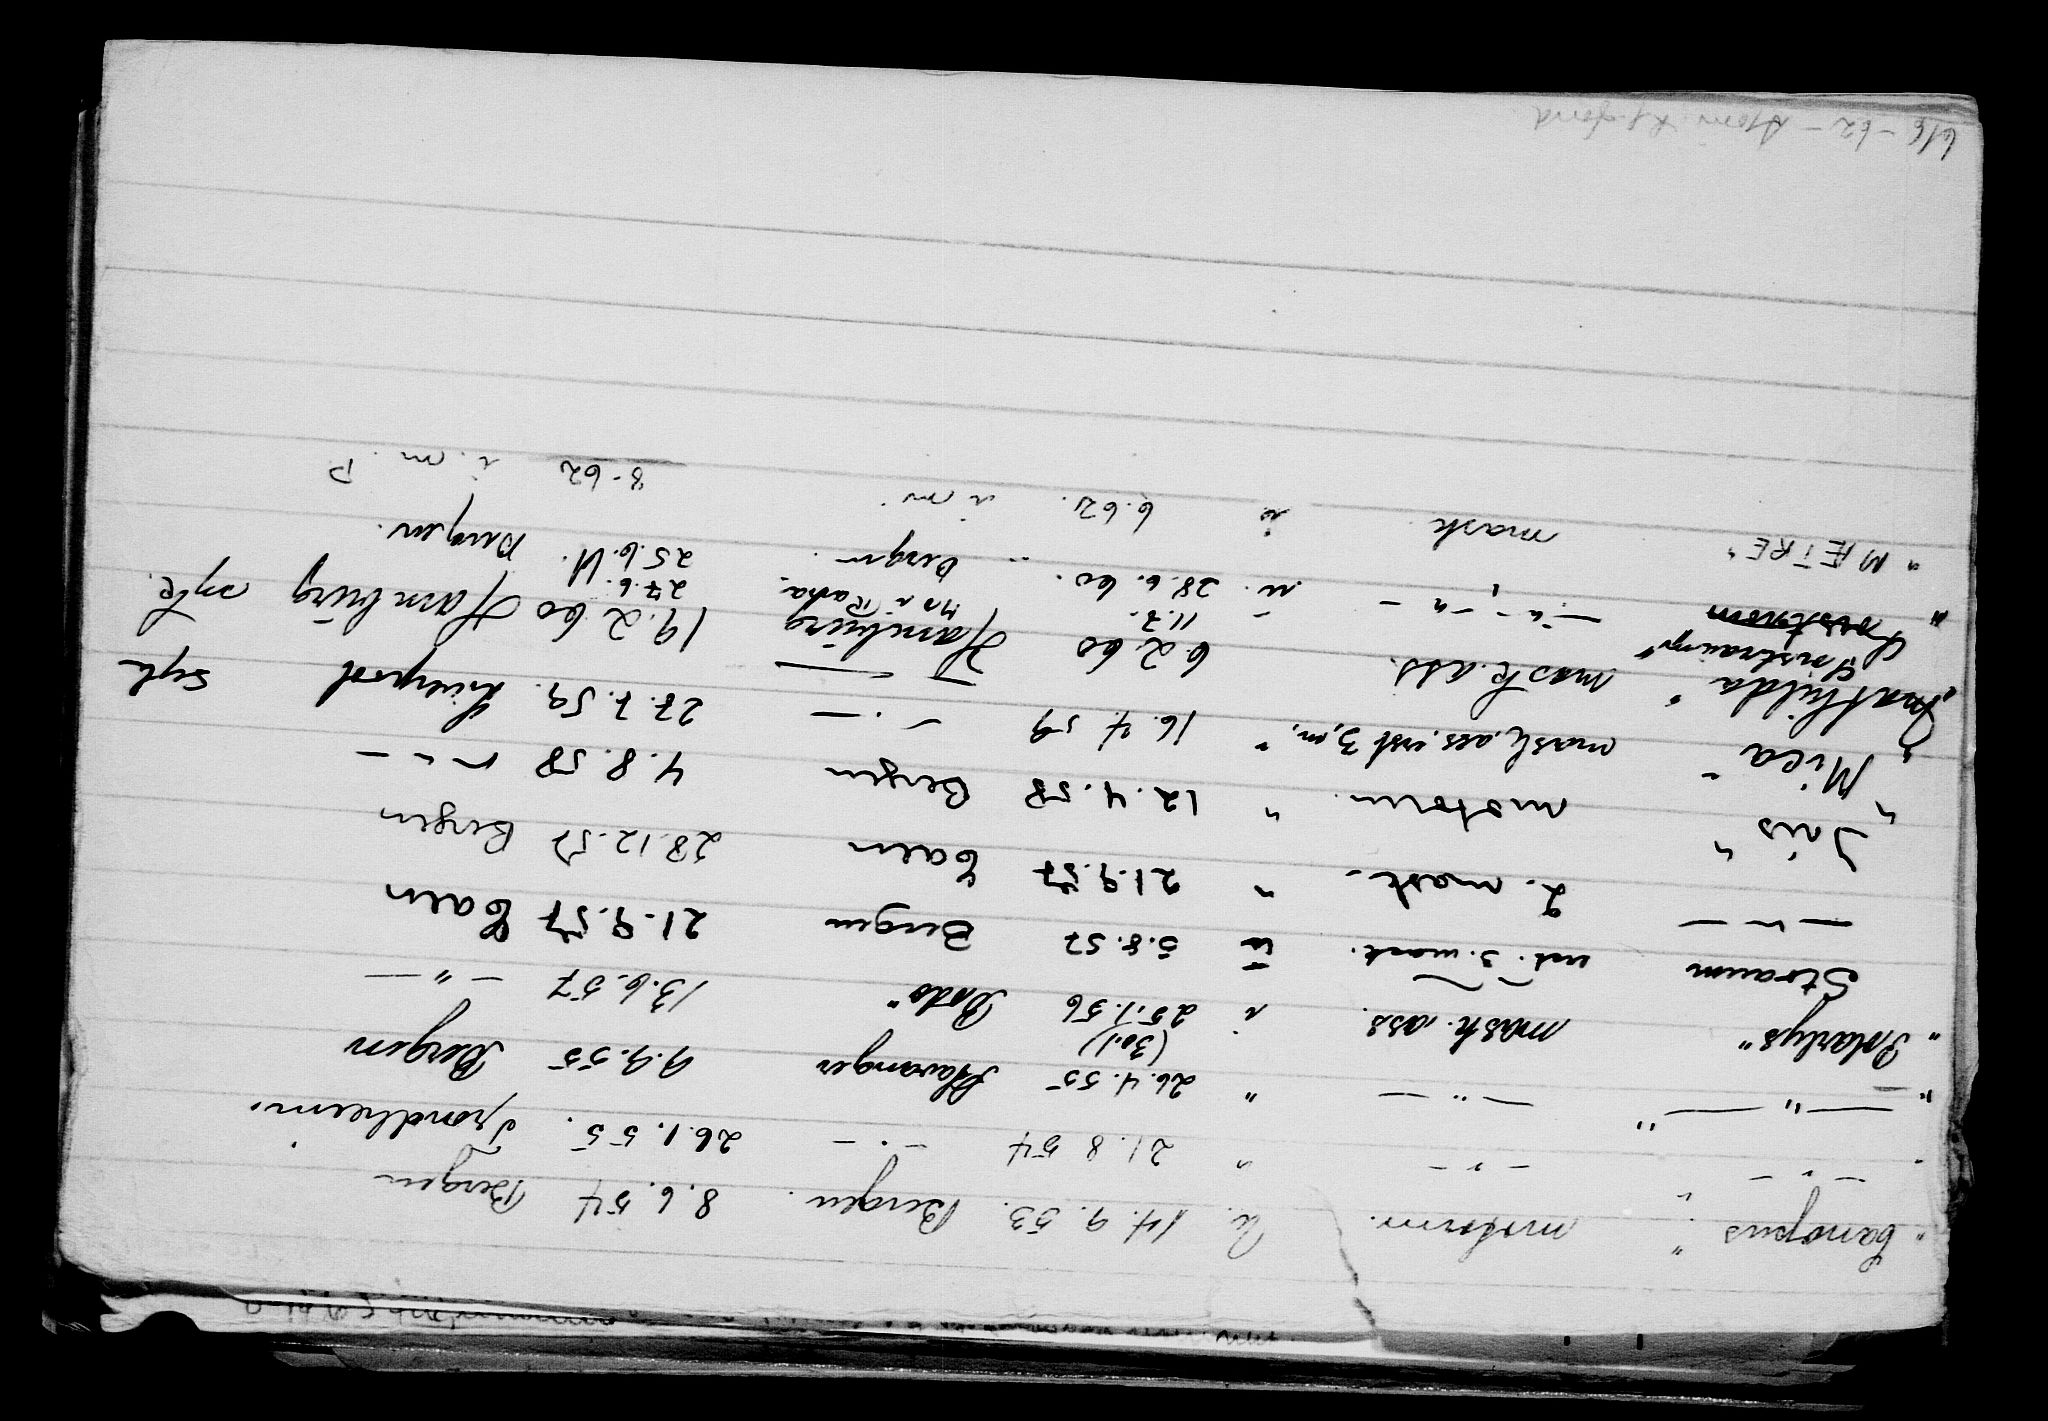 "Canopus" motorm. å. 14.9.53. Bergen. 8.6.54 Bergen
" - " - " - " - " 21.8 54 - " - 26.1.55. Trondheim.
" — " — " — " — " 26.4.55 Stavanger 9.9.55 Bergen
(30.1)
"Polarlys" mask. ass. i 25.1.56 Bodø 13.6.57 — " —
Straum ust. 3. mask. å 5.8.57 Bergen 21.9.57 Caen
— " — 2. mask. " 21.9.57 Caen 28.12.57 Bergen
"Isis" motorm. " 12.4.58 Bergen 4.8.58 — " —
"Mica" mask. ass. ust 3. m. " 16.4.59 — " — 27.7.59. Liverpool syk
"Mathilda" mask. ass. 6.2.60 Hamburg 19.2.60 Hamburg syk.
"Instraum" — " — " — 11.7. 27.6.
u. 28.6.60. Bergen. 25.6.61. Bergen.
"MÆTRE" mask. u 6.62. i.m. 8-62 i.m. P
6/6-62 -